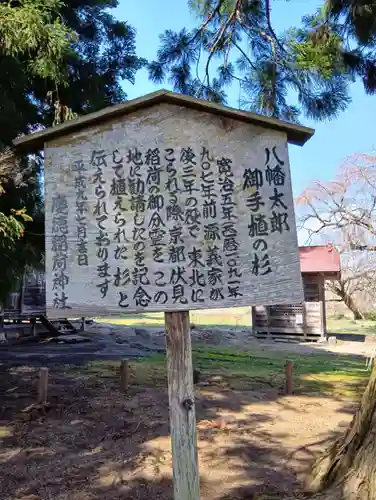 八幡太郎
御手植の杉
寛治五年(西暦一〇九一年
九〇七年前)源義家東北に
後三年の役で
こられる際、京都伏見
稲荷の御分霊を
地に勧請したのを記念
して植えられた杉と
伝えられております
平成
慶徳稲荷神社